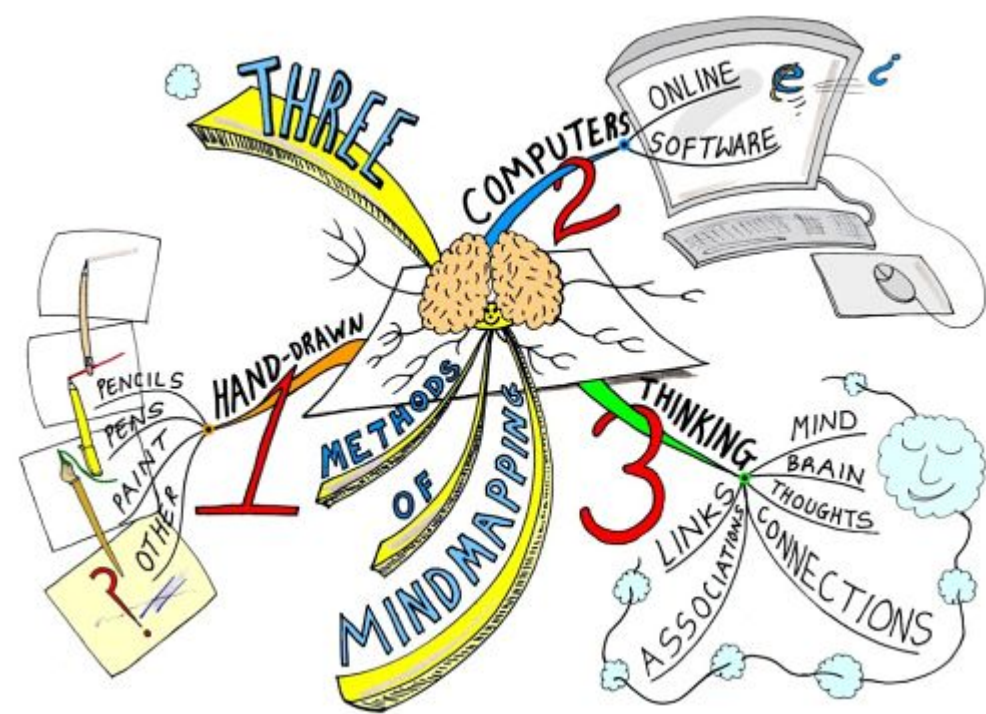 THREE
METHODS
OF
MINDMAPPING
1
HAND-DRAWN
PENCILS
PENS
PAINT
OTHER
?
2
COMPUTERS
ONLINE
SOFTWARE
e
?
3
THINKING
MIND
BRAIN
THOUGHTS
CONNECTIONS
ASSOCIATIONS
LINKS